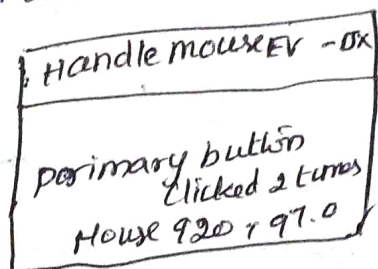 Handle mouse EV - □X
perimary button
clicked 2 times
Mouse 920, 97.0